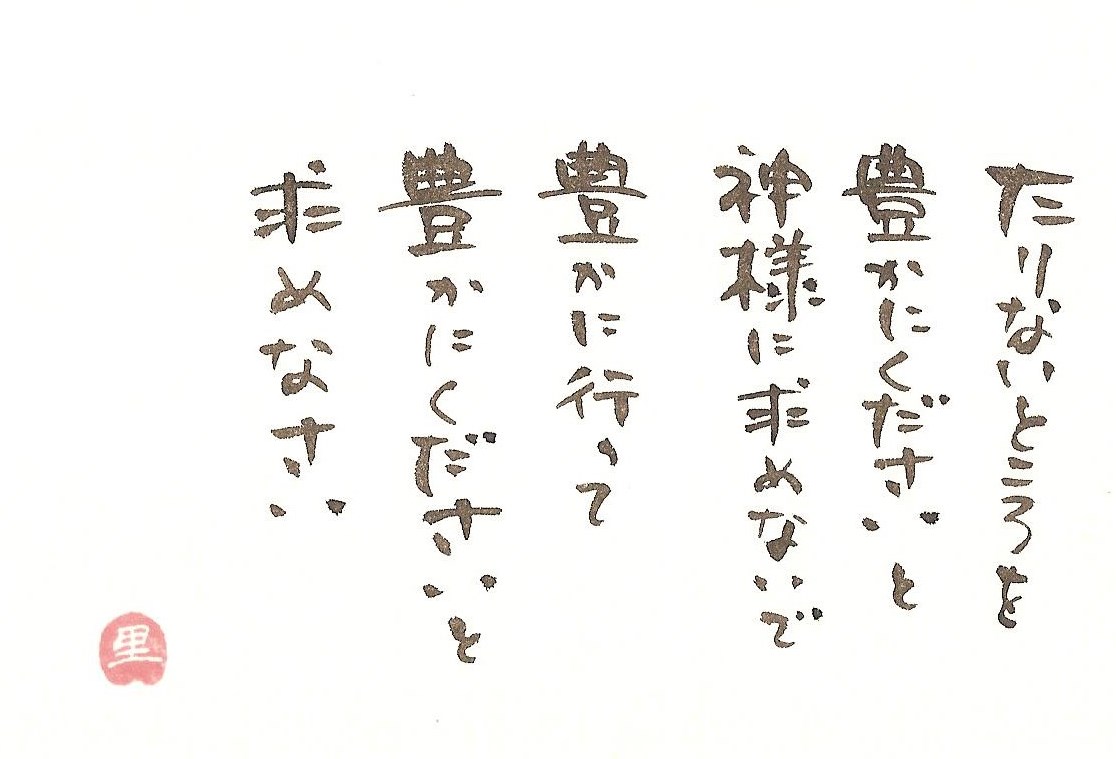 たりないところを
豊かにくださいと
神様に求めないで
豊かに行って
豊かにくださいと
求めなさい
里